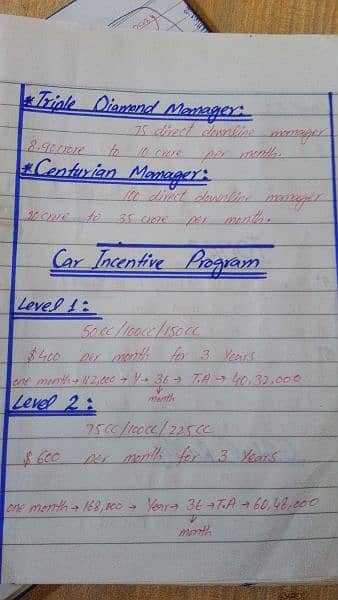 *Triple Diamond Manager:
75 direct downline manager
8.90 crore to 10 crore per month.
*Centurian Manager:
100 direct downline manager
20 crore to 35 crore per month.
Car Incentive Program
Level 1:
50cc/100cc/150cc
$400 per month for 3 Years
one month → 112,000 → Y → 36 → T.A → 40,32,000
month
Level 2:
75cc/100cc/225cc
$600 per month for 3 Years
one month → 168,000 → Year → 36 → T.A → 60,48,000
month